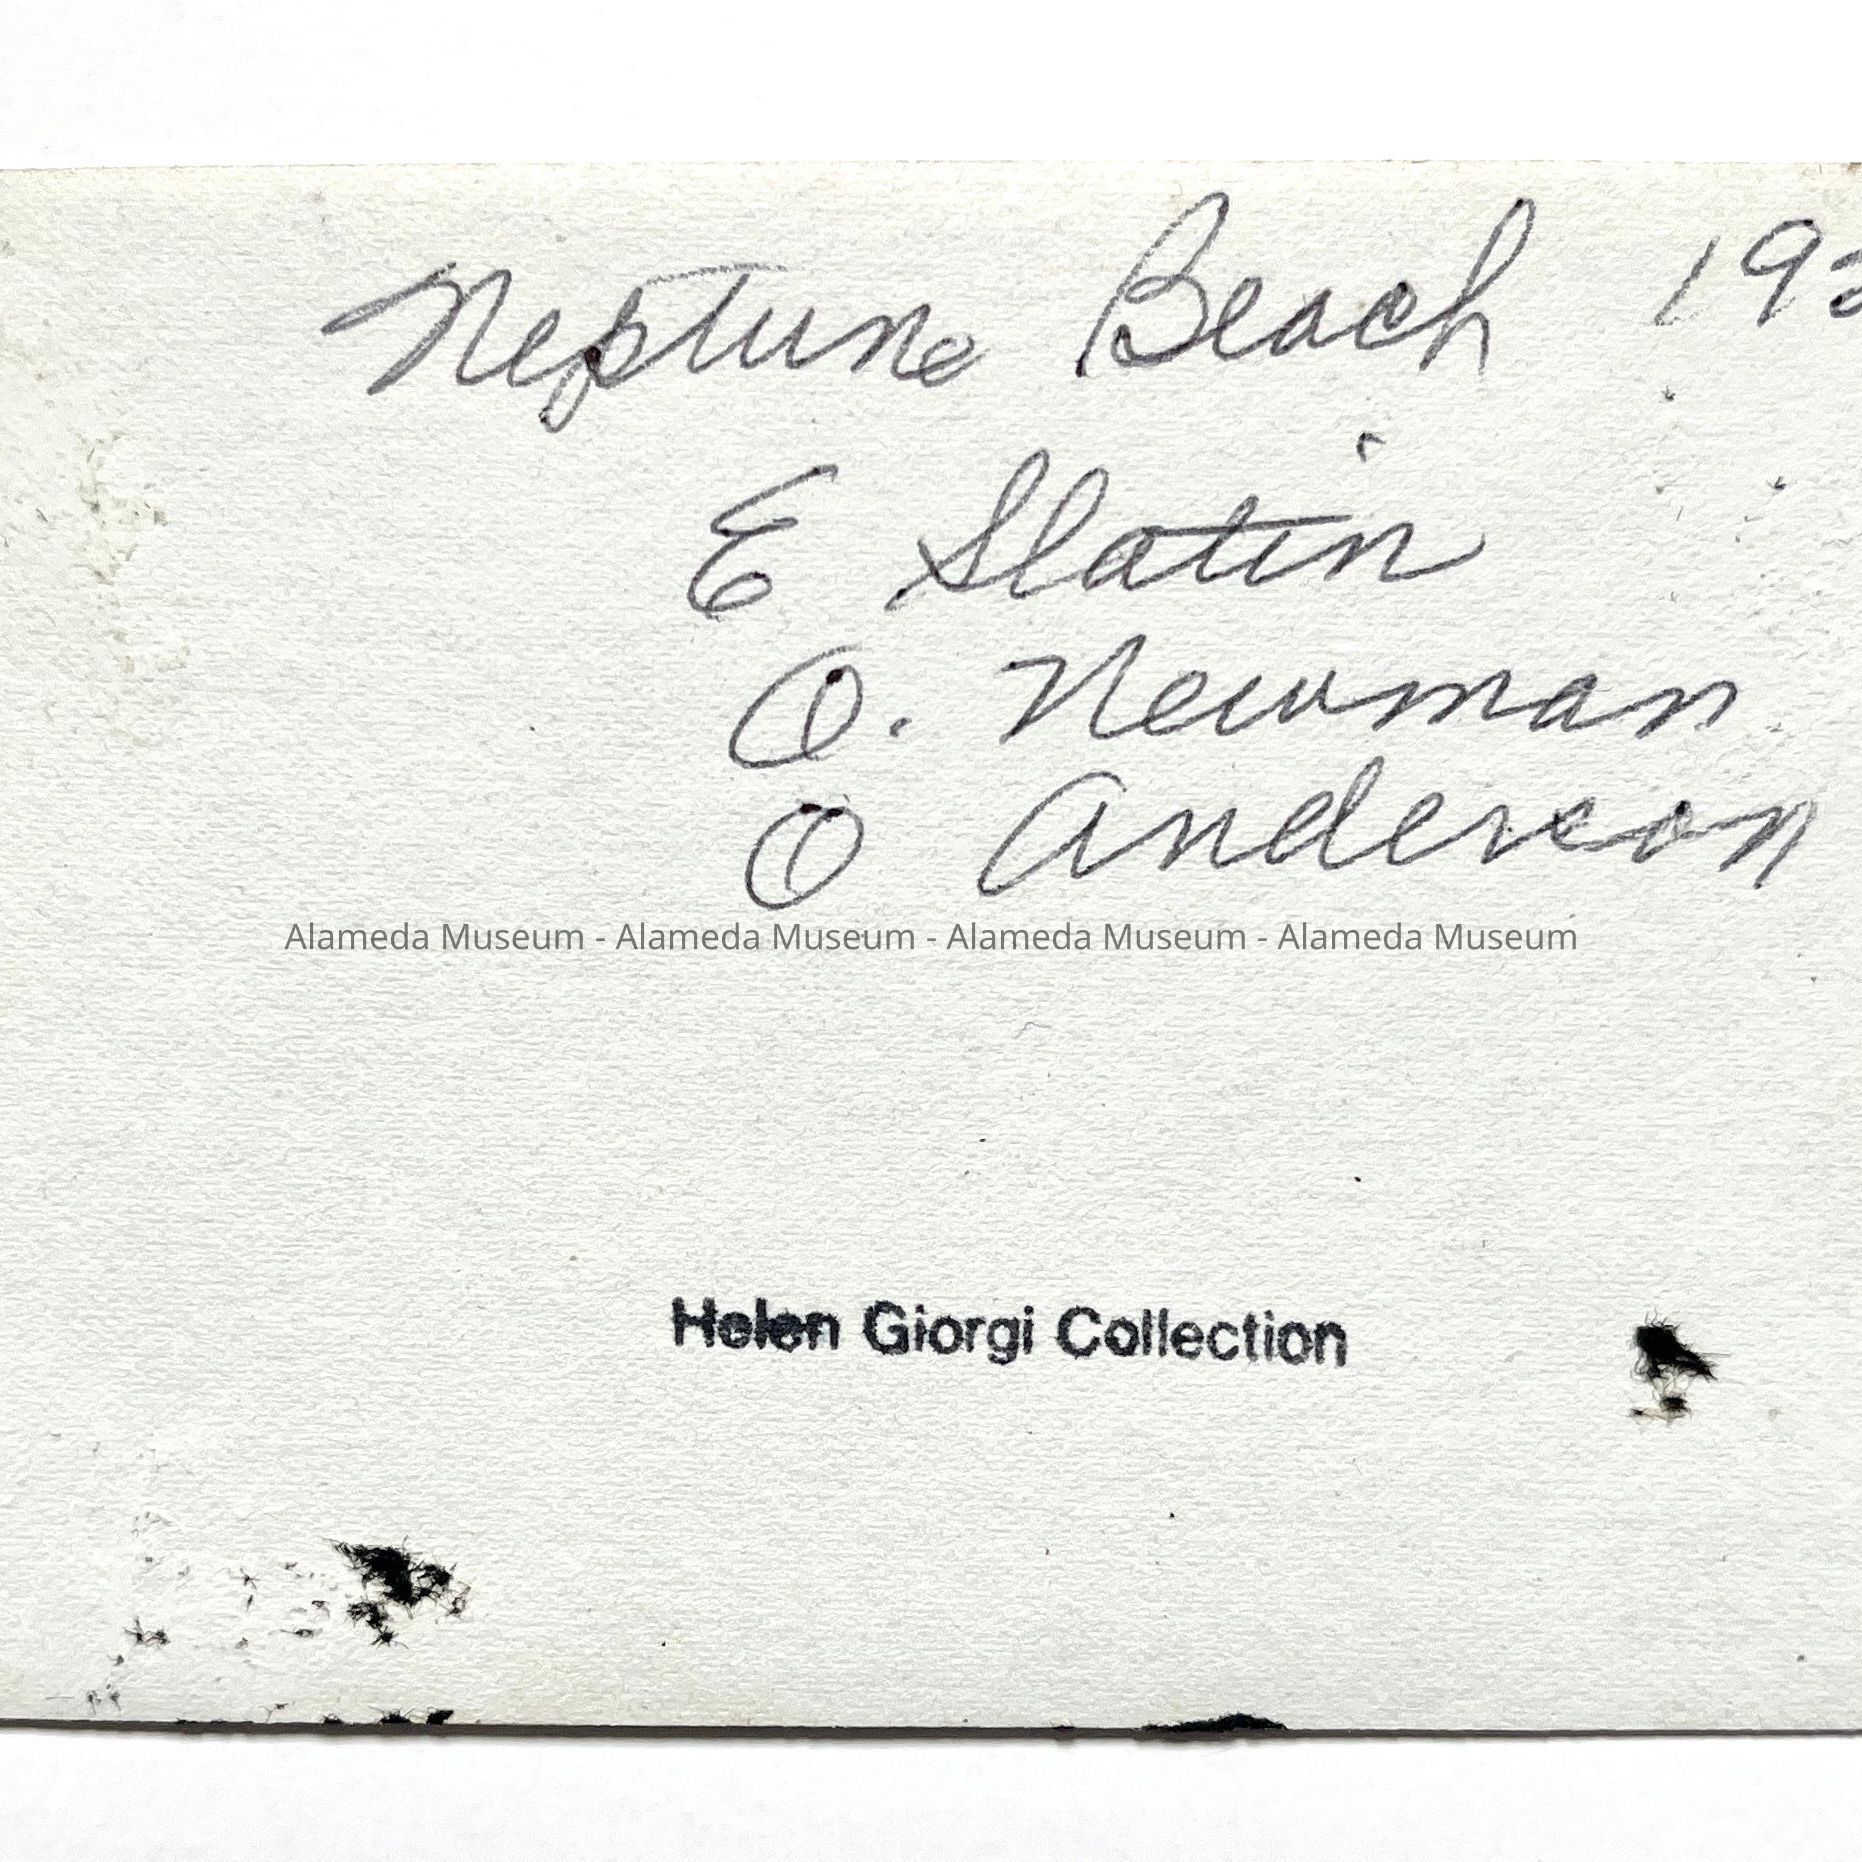 Neptune Beach 192
E Slatin
O. Newman
O Anderson
Alameda Museum - Alameda Museum - Alameda Museum - Alameda Museum
Helen Giorgi Collection